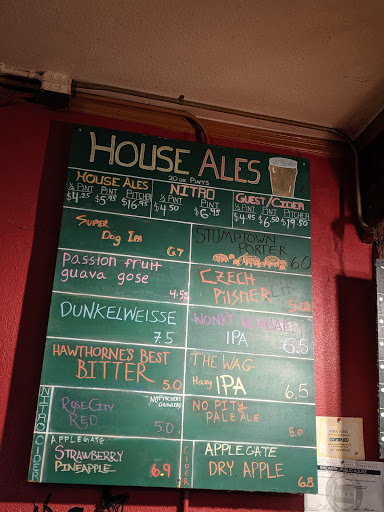 HOUSE ALES
20 oz PINTS
HOUSE ALES
½ PINT PINT PITCHER
$4.25 $5.95 $16.95
NITRO
½ PINT PINT
$4.50 $6.95
GUEST/CIDER
½ PINT PINT PITCHER
$4.95 $6.50 $19.50
SUPER
DOG IPA 6.7
STUMPTOWN
PORTER 6.0
PASSION FRUIT
GUAVA GOSE 4.5%
CZECH
PILSNER
DUNKELWEISSE
7.5
WONKY
IPA 6.5
HAWTHORNE'S BEST
BITTER 5.0
THE WAG
Hazy IPA 6.5
NITRO
ROSE CITY
RED 5.0
NO PITCHERS
GROWLERS
NO PITY
PALE ALE 5.0
CIDER
APPLEGATE
STRAWBERRY
PINEAPPLE 6.9
CIDER
APPLEGATE
DRY APPLE 6.8